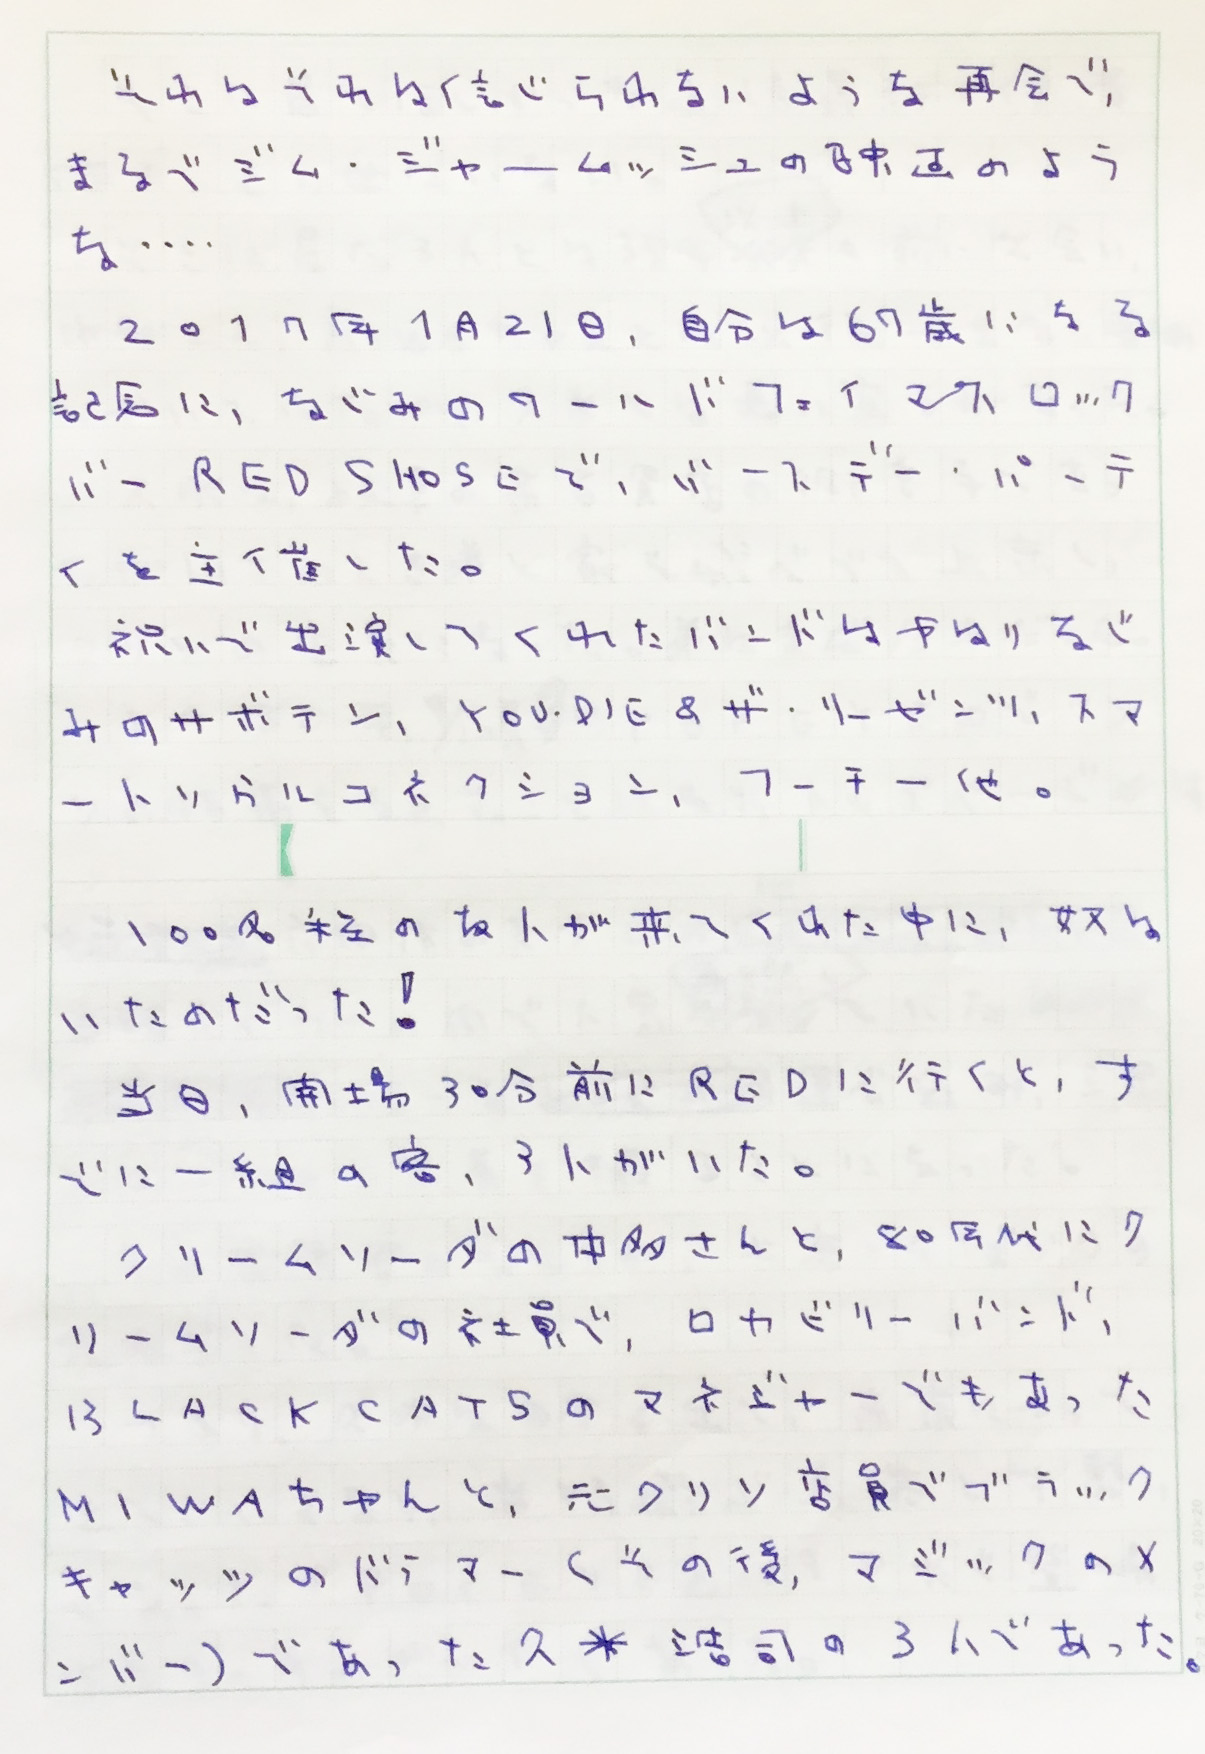 それはそれはく信じられないような再会で、
まるでジム・ジャームッシュの映画のよう
な‥‥
２０１７年１月２１日、自分は６７歳になる
記念に、なじみのワールドフェイマスロック
バーＲＥＤ ＳＨＯＳＥで、バースデー・パーテ
ィを主催した。
祝いで出演してくれたバンドはやはりなじ
みのサボテン、ＹＯＵ・ＤＩＥ＆ザ・リーゼンツ、スマ
ートソウルコネクション、フーチー他。
１００名程の友人が来てくれた中に、奴は
いたのだった！
当日、開場３０分前にＲＥＤに行くと、す
でに一組の客、３人がいた。
クリームソーダの中多さんと、８０年代にク
リームソーダの社員で、ロカビリーバンド、
ＢＬＡＣＫ ＣＡＴＳのマネジャーでもあった
ＭＩＷＡちゃんと、元クリソ店員でブラック
キャッツのドラマー（その後、マジックのメ
ンバー）であった久米浩司の３人であった。